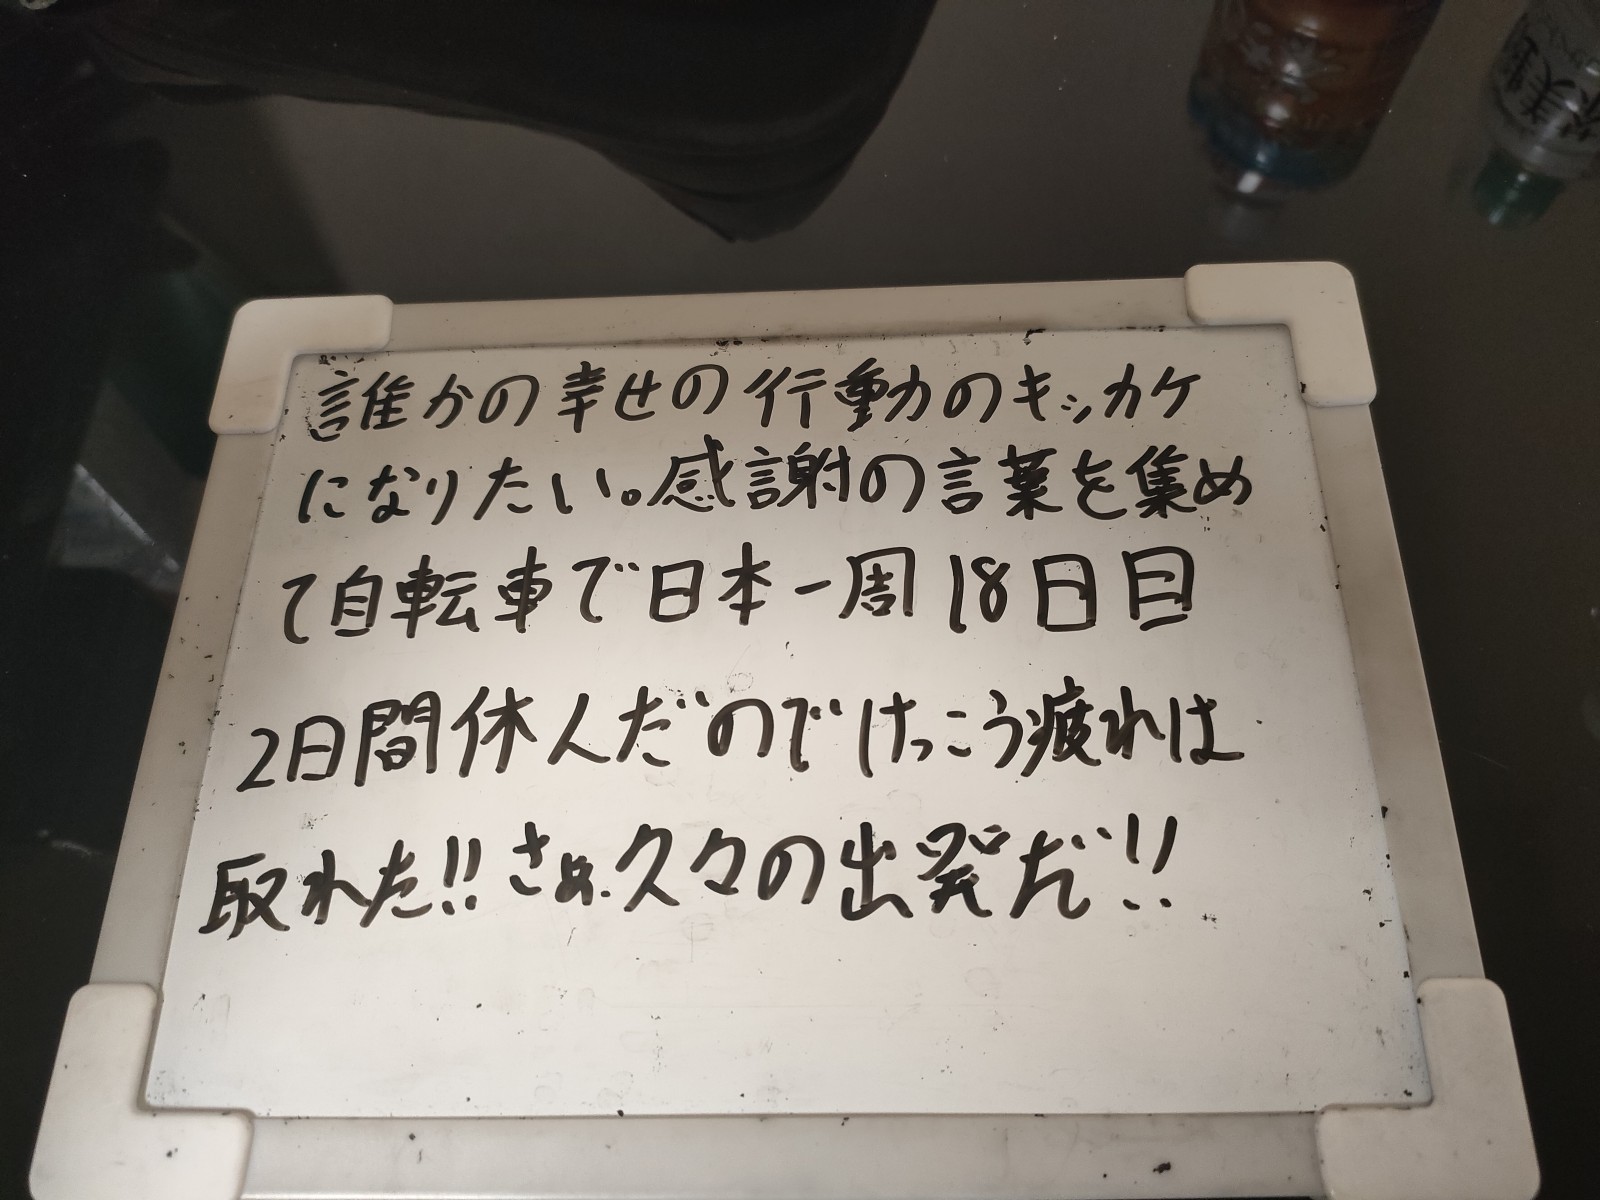 誰かの幸せの行動のキッカケ
になりたい。感謝の言葉を集め
て自転車で日本一周18日目
2日間休んだのでけっこう疲れは
取れた!! さぁ.久々の出発だ!!